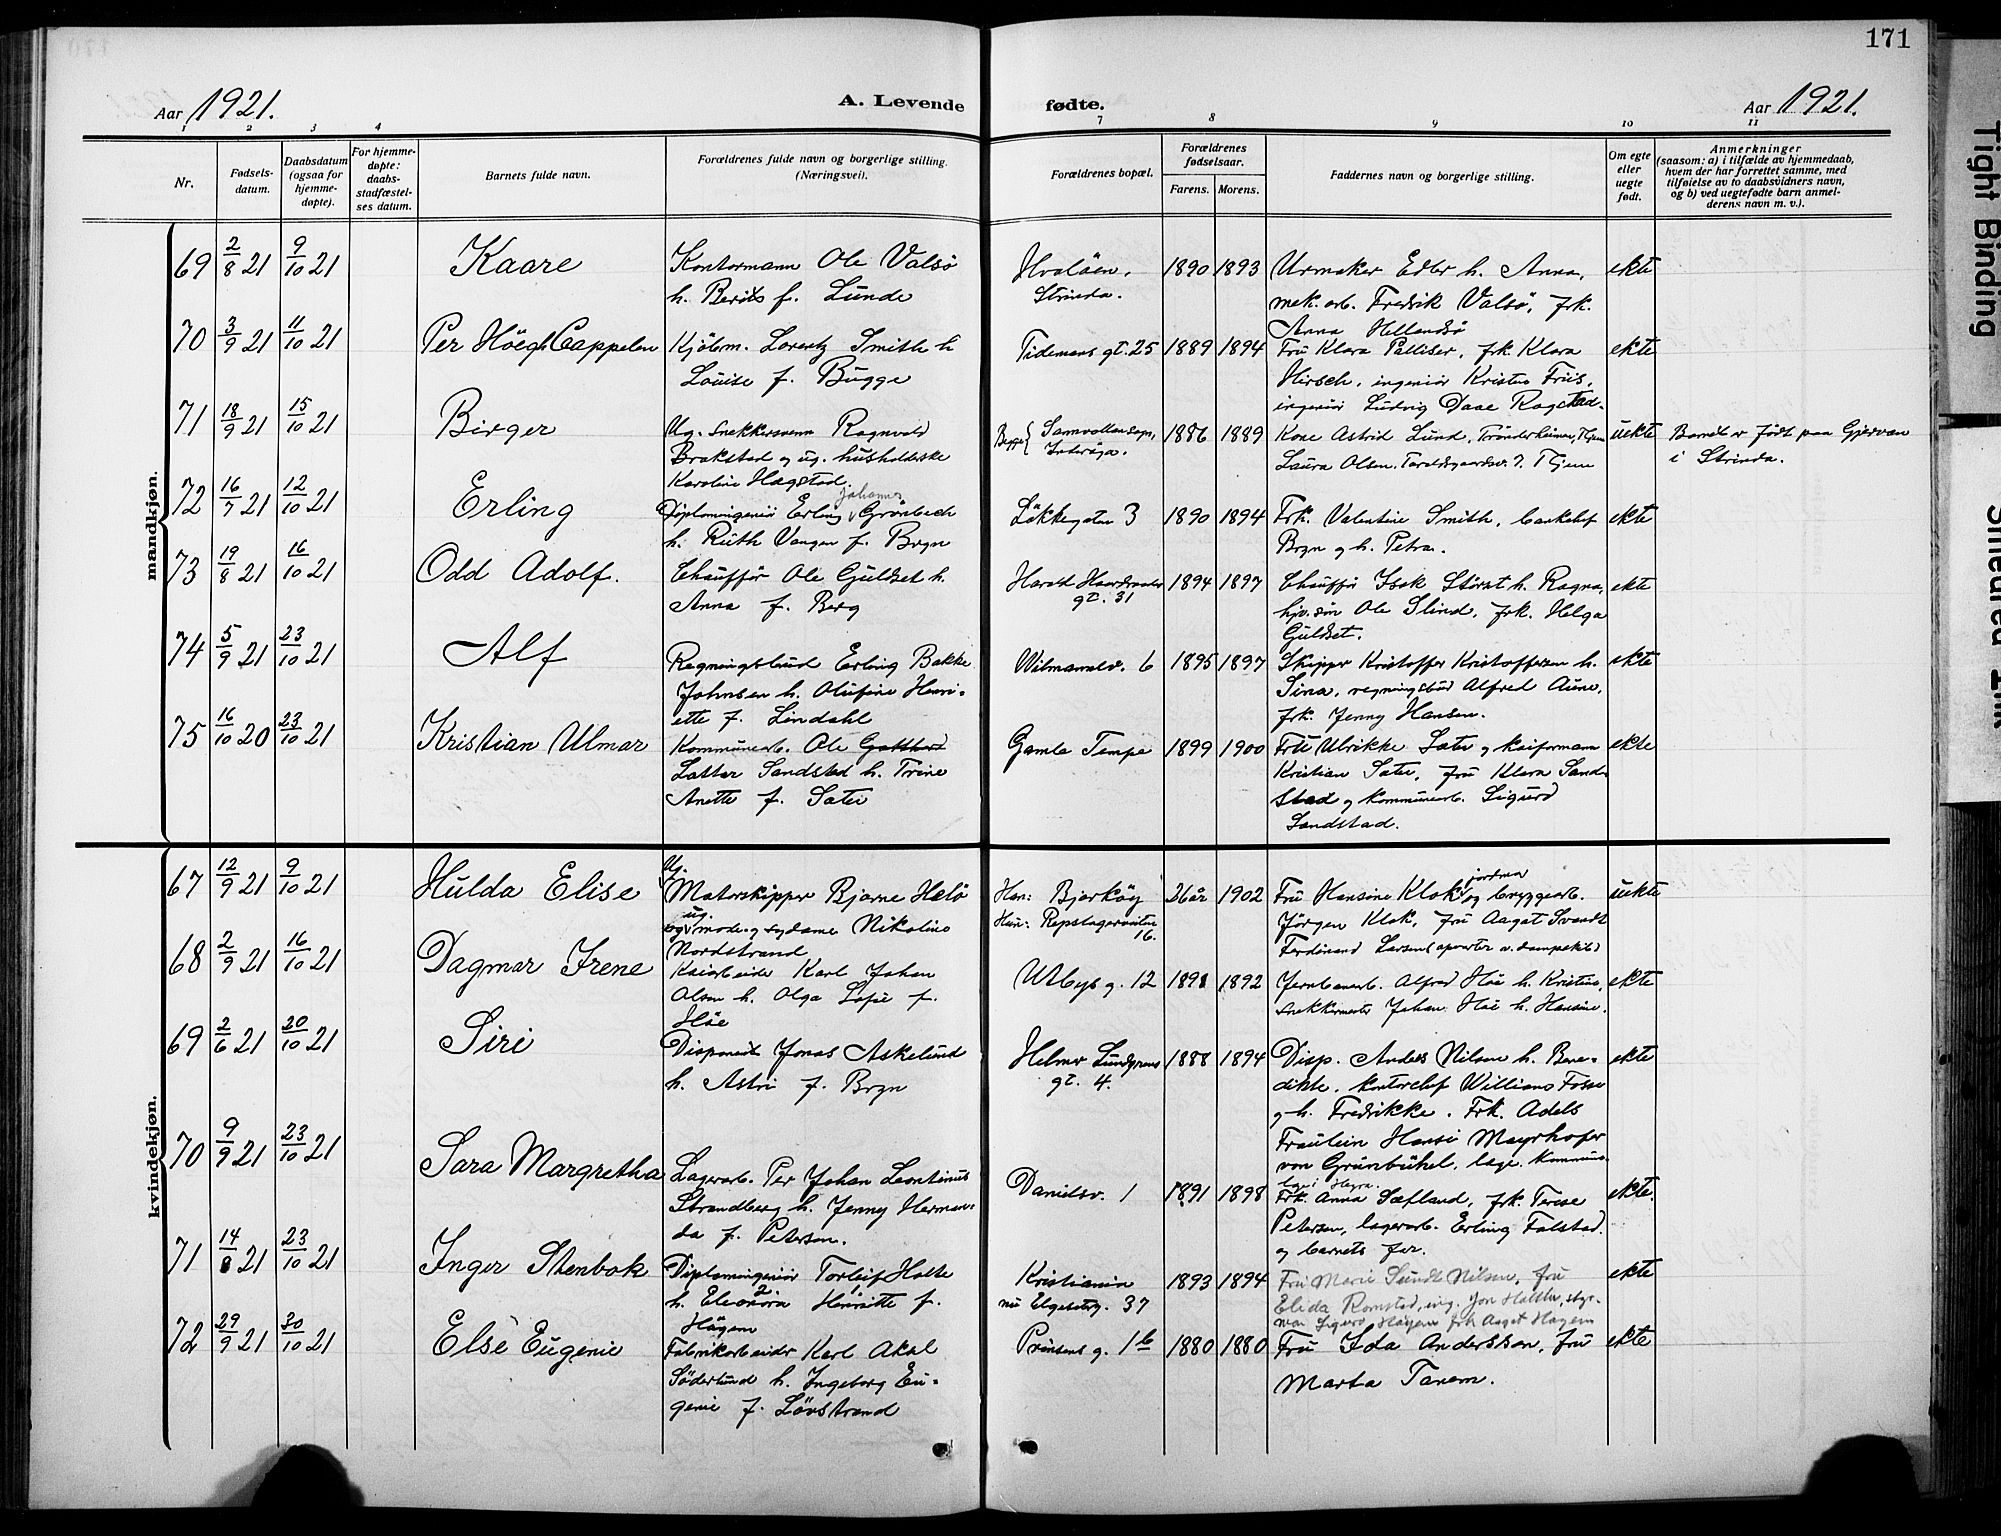 171
Aar 1921. A. Levende fødte. Aar 1921.
1 2 3 4 7 8 9 10 11
Nr.
Fødsels-
datum.
Daabsdatum
(ogsaa for
hjemme-
døpte).
For hjemme-
døpte:
daabs-
stadfæstel-
ses datum.
Barnets fulde navn.
Forældrenes fulde navn og borgerlige stilling.
(Næringsvei).
Forældrenes bopæl.
Forældrenes
fødselsaar.
Farens. Morens.
Faddernes navn og borgerlige stilling.
Om egte
eller
uegte
født.
Anmerkninger
(saasom: a) i tilfælde av hjemmedaab,
hvem der har forrettet samme, med
tilføielse av to daabsvidners navn,
og b) ved uegtefødte barn anmel-
derens navn m. v.).
mandkjøn.
69 2/8 21 9/10 21 Kaare
Kontormann Ole Valsø
h. Berit f. Lunde
Hvaløen,
Strinda.
1890 1893
Urmaker Edler h. Anna,
mek. arb. Fredrik Valsø, frk.
Anna Hellandsø
ekte
70 3/9 21 11/10 21 Per Höegh Cappelen
Kjöbm. Lorentz Smith h
Louise f. Bugge
Tidemans gt. 25
1889 1894
Fru Klara Palliser, frk Klara
Hirsch, ingeniör Kristen Friis,
ingeniör Ludvig Daae Rogstad.
ekte
71 18/9 21 15/10 21 Birger
Ug. snekkersvenn Ragnvald
Brakstad og ug. husholderske
Karoline Hegstad.
Begge { Samvollan
Inderøya.
1886 1889
Kone Astrid Lund, Trondheim
Laura Olsen, 7. Thjem
uekte
Barnet er født paa Gjervan
i Strinda.
72 16/7 21 12/10 21 Erling
Johannes
Diplomingeniør Erling Grönbech
h. Ruth Vangen f. Bryn
Løkkegaten 3
1890 1894
Frk. Valentine Smith, bankchef
Bryn og h. Petra.
ekte
73 19/8 21 16/10 21 Odd Adolf.
Chauffør Ole Guldset h.
Anna f. Berg
Harald Haardraades
gt. 31
1894 1897
Chauffør Isak Störset h. Ragna,
hjv.søn Ole Slind, frk. Helga
Guldset.
ekte
74 5/9 21 23/10 21 Alf
Regningsbud Erling Bakke
Johnsen h. Olufine Henri-
ette f. Lindahl
Wilmannsv. 6
1895 1897
Skipper Kristoffer Kristoffersen h.
Sina, regningsbud Alfred Aune,
frk. Jenny Hansen.
ekte
75 16/10 20 23/10 21 Kristian Ulmar
Kommunearb. Ole Gotthard
Lotter Sandstad h. Trine
Anette f. Sæter
Gamle Tempe
1899 1900
Fru Ulrikke Sæter og kaiformann
Kristian Sæter, fru Klara Sand-
stad og kommunearb. Sigurd
Sandstad.
ekte
kvindekjøn.
67 12/9 21 9/10 21 Hulda Elise
Ug.
Motorskipper Bjarne Helø
ug.
og mode- og sydame Nikoline
Nordstrand
Han: Bjarköy
Hun: Repslagerveiten
16.
26 år 1902
jordmor
Fru Hansine Klok og bryggearb.
Jörgen Klok, fru Aagot Svandt
Ferdinand Larsen
uekte
68 2/9 21 16/10 21 Dagmar Irene
Kaiarbeider Karl Johan
Olsen h. Olga Sofie f.
Höe
Utbys g. 12
1891 1892
Jernbanearb. Alfred Höe h. Kristine,
snekkermester Johan Höe h. Hansine.
ekte
69 2/6 21 20/10 21 Siri
Disponent Jonas Askelund
h. Astri f. Bryn
Helmer Lundgrens
gt. 4.
1888 1894
Disp. Anders Nilsen h. Bene-
dikte, kontorchef Williams Fosse
og h. Fredrikke. Frk. Adels
Fraulein Hansi Mayrhofer
von Grünbühel, læge. Kommune-
læge i Hegra.
ekte
70 9/9 21 23/10 21 Sara Margretha
Lagerarb. Per Johan Leontinus
Strandberg h. Jenny Herman-
da f. Petersen.
Danielsv. 1
1891 1898
Frk. Anna Sæfland, frk. Terese
Petersen, lagerarb. Erling Falstad
og barnets far.
ekte.
71 14/8 21 23/10 21 Inger Stenbok
Diplomingeniör Torleif Holte
h. Eleonora Henriette f.
Hågem
Kristiania
nu Elgeseterg. 37
1893 1894
Fru Marie Sundt Nilsen, fru
Elida Romstad, ing. Jon Holte, styr-
man Sigurd Hågem frk Aagot Hagem
ekte
72 29/9 21 30/10 21 Else Eugenie
Fabrikarbeider Karl Aksel
Söderlund h. Ingeborg Eu-
genie f. Lövstrand
Prinsens g. 1b
1880 1880
Fru Ida Anderssen, fru
Marta Tanem.
ekte
Tight Binding
Smeared Ink